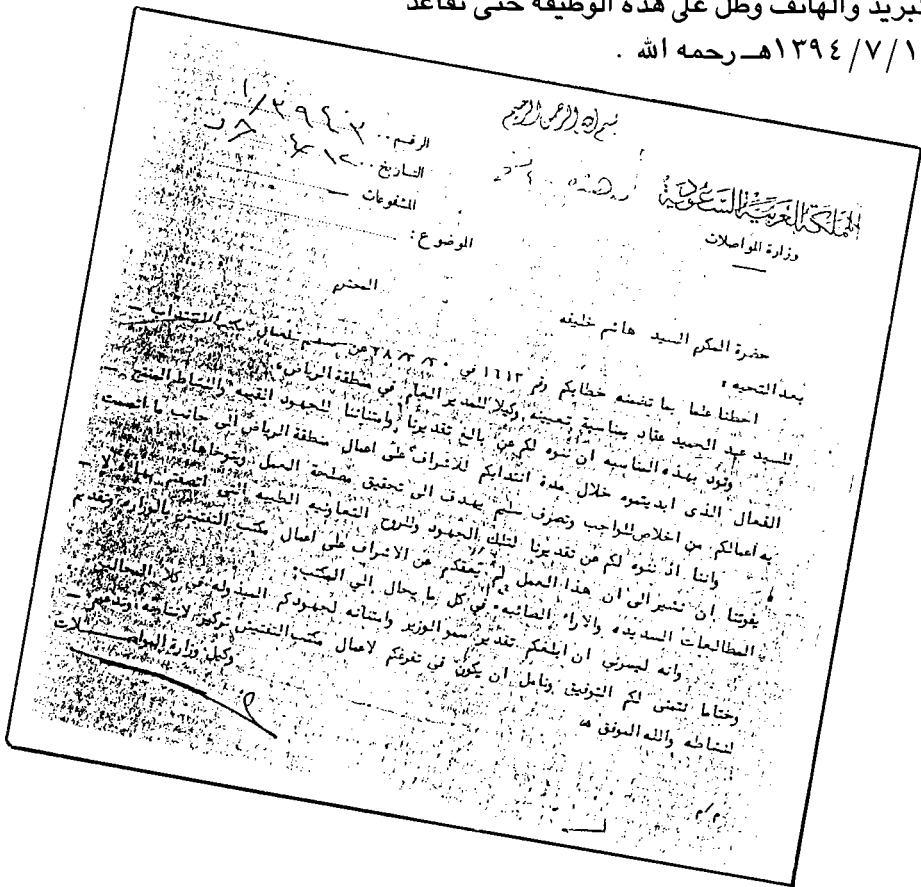 البريد والهاتف وظل على هذه الوظيفة حتى تقاعد
١٣٩٤/٧/١هـ رحمه الله .
بسم الله الرحمن الرحيم
المملكة العربية السعودية
وزارة المواصلات
الرقم ..
التاريخ ..
المشفوعات —
الموضوع :
حضرة المكرم السيد هاشم خليفه المحترم
بعد التحيه :
احطنا علما بما تضمنه خطابكم رقم ١٦١٢ في
للسيد عبد الحميد عقاد بمناسبة تعيينه وكيلا للمدير العام في منطقة الرياض .
ونود بهذه المناسبه ان ننوه لكم عن بالغ تقديرنا وامتناننا للجهود القيمه والنشاط
الفعال الذى ابديتموه خلال مدة انتدابكم للاشراف على اعمال منطقة الرياض الى جانب ما اتسمت
به اعمالكم من اخلاص للواجب وتصرف سليم يهدف الى تحقيق مصلحة العمل
واننا اذ ننوه لكم عن تقديرنا لتلك الجهود وللروح التعاونيه الطيبه التى
يفوتنا ان نشير الى ان هذا العمل لم يعقكم عن الاشراف على اعمال مكتب التفتيش بالوزاره وتقديم
المطالعات السديده والاراء الصائبه في كل ما يحال الى المكتب .
وانه ليسرني ان ابلغكم تقدير سمو الوزير وامتنانه لجهودكم المبذوله في كلا المجالين
وختاما نتمنى لكم التوفيق ونامل ان يكون في تفرغكم لاعمال مكتب التفتيش
لنشاطه والله الموفق ،،
وكيل وزارة المواصلات